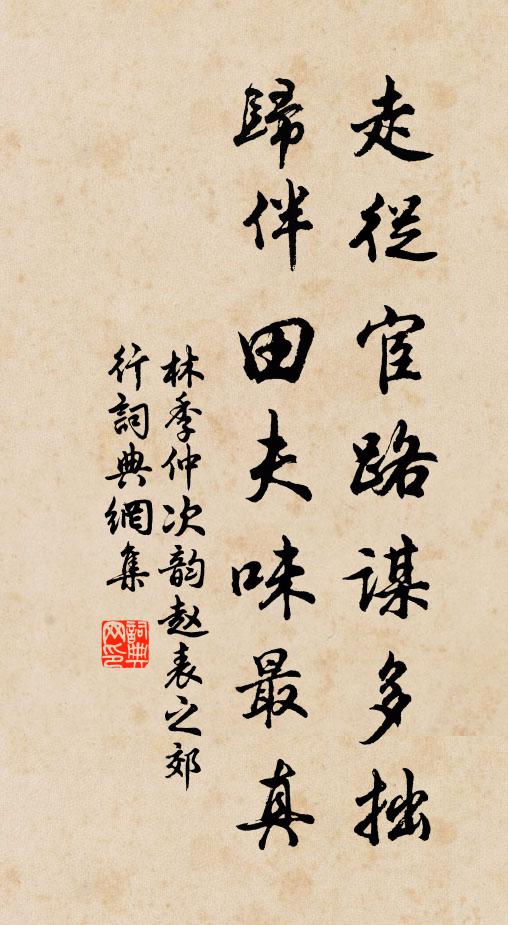 走從宦路謀多拙
歸伴田夫味最真
林季仲次韵赵表之郊
行詞典網集
詞典网印